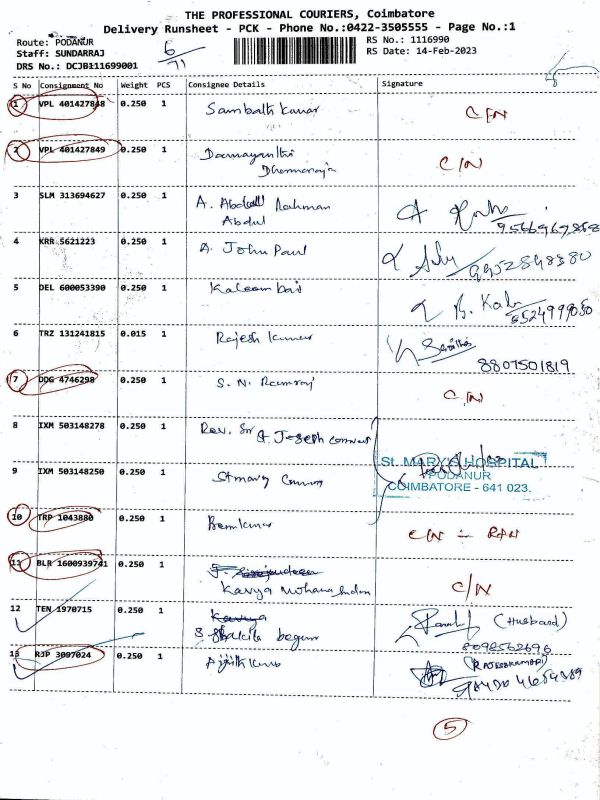 THE PROFESSIONAL COURIERS, Coimbatore
Delivery Runsheet - PCK - Phone No.:0422-3505555 - Page No.:1
Route: PODANUR
Staff: SUNDARRAJ
DRS No.: DCJB111699001
6/71
RS No.: 1116990
RS Date: 14-Feb-2023
S No Consignment No Weight PCS Consignee Details Signature
1 VPL 401427848 0.250 1 Sambath Kumar C/N
2 VPL 401427849 0.250 1 Damayanthi Dharmaraja C/N
3 SLM 313694627 0.250 1 A. Abdul Rahman
Abdul
4 KRR 5621223 0.250 1 A. John Paul
5 DEL 600053390 0.250 1 Kaleem bai
6 TRZ 131241815 0.015 1 Rajesh Kumar
8807501819
7 DDG 4746298 0.250 1 S. N. Ramraj C/N
8 IXM 503148278 0.250 1 Rev. Sr Joseph convent
9 IXM 503148250 0.250 1 St mary
St. MARY'S HOSPITAL
PODANUR
COIMBATORE - 641 023.
10 TRP 1043880 0.250 1 C/N - RAN
11 BLR 1600939741 0.250 1 Kavya C/N
12 TEN 1970715 0.250 1 S. Shakila begum (Husband)
8098562696
13 RJP 3097024 0.250 1 Ajith Kumar
5